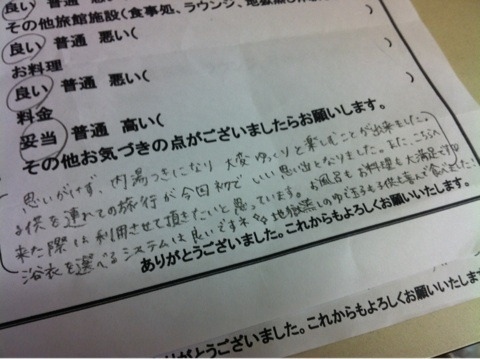 良い 普通 悪い(
その他旅館施設(食事処、ラウンジ、地獄蒸し
良い 普通 悪い( )
お料理
良い 普通 悪い( )
料金
妥当 普通 高い( )
その他お気づきの点がございましたらお願いします。
思いがけず、内湯つきになり 大変ゆっくりと楽しむことが出来ました。
子供を連れての旅行が今回初で いい思い出となりました。また、こちらへ
来た際は利用させて頂きたいと思っています。お風呂もお料理も大満足です。
浴衣を選べるシステムは良いですネ☆☆ 地獄蒸しのゆで玉子も子供も喜んで食べました!
ありがとうございました。これからもよろしくお願いいたします。
りがとうございました。これからもよろしくお願いいたします